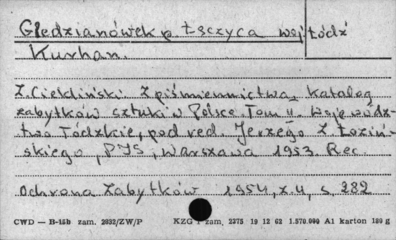 Gledzianówek p. Łęczyca woj. Łódź
Kurhan.
Z. Ciekliński. Z piśmiennictwa, katalog
zabytków sztuki w Polsce Tom II. Wojewódz-
two Łódzkie, pod red. Jerzego Z. Łoziń-
skiego, PIS, Warszawa 1953. Rec.
Ochrona Zabytków 1954, z. 4, s. 282
CWD — B-15b zam. 2032/ZW/P KZG 1 zam. 2275 19 12 62 1.570.000 A1 karton 180 g